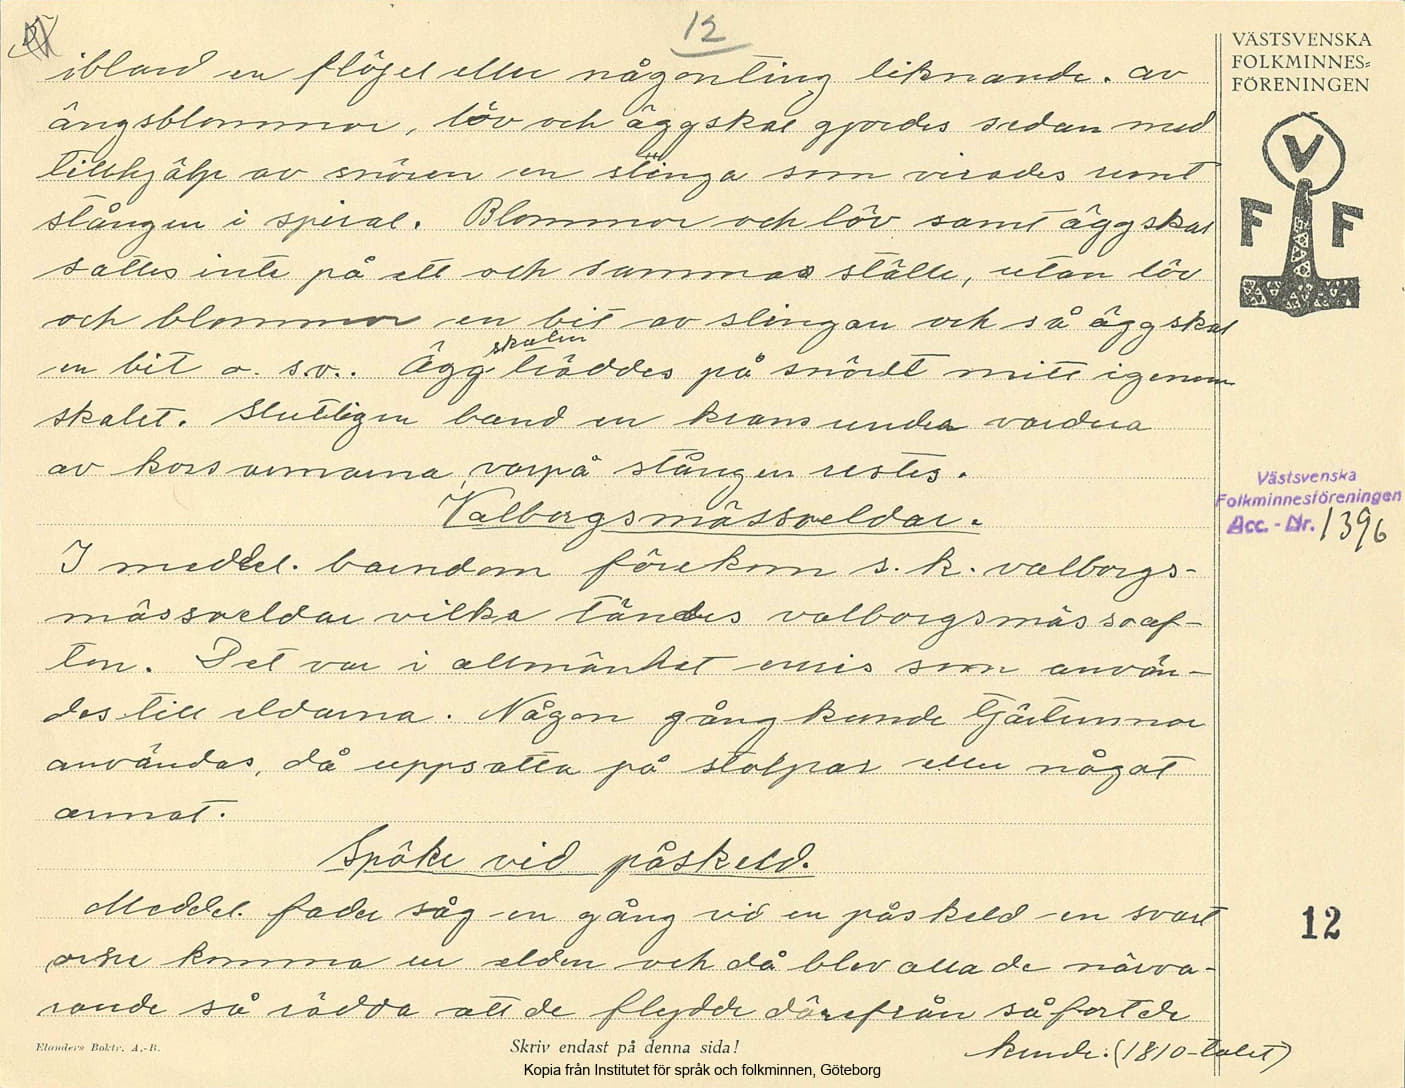 12
VÄSTSVENSKA
FOLKMINNES=
FÖRENINGEN
V
F F
ibland en flöjel eller någonting liknande. av
ängsblommor, löv och äggskal gjordes sedan med
tillhjälp av snören en slinga som virades runt
stången i spiral. Blommor och löv samt äggskal
sattes inte på ett och samma ställe, utan löv
och blommor en bit av slingan och så äggskal
en bit o. s.v.. Äggskalen träddes på snöret mitt igenom
skalet. Slutligen band en krans under vardera
av korsarmarna, varpå stången restes.
Valborgsmässoeldar.
I meddel. barndom förekom s. k. valborgs-
mässoeldar vilka tändes valborgsmässoaf-
ton. Det var i allmänhet enris som använ-
des till eldarna. Någon gång kunde tjärtunnor
användas, då uppsatta på stolpar eller något
annat.
Spöke vid påskeld.
Meddel. fader såg en gång vid en påskeld en svart
komma ur elden och då blev alla de närva-
rande så rädda att de flydde därifrån så fort de
kunde. (1810-talet)
Västsvenska
Folkminnesföreningen
Acc. - Nr. 1396
12
Elanders Boktr. A.-B.
Skriv endast på denna sida!
Kopia från Institutet för språk och folkminnen, Göteborg